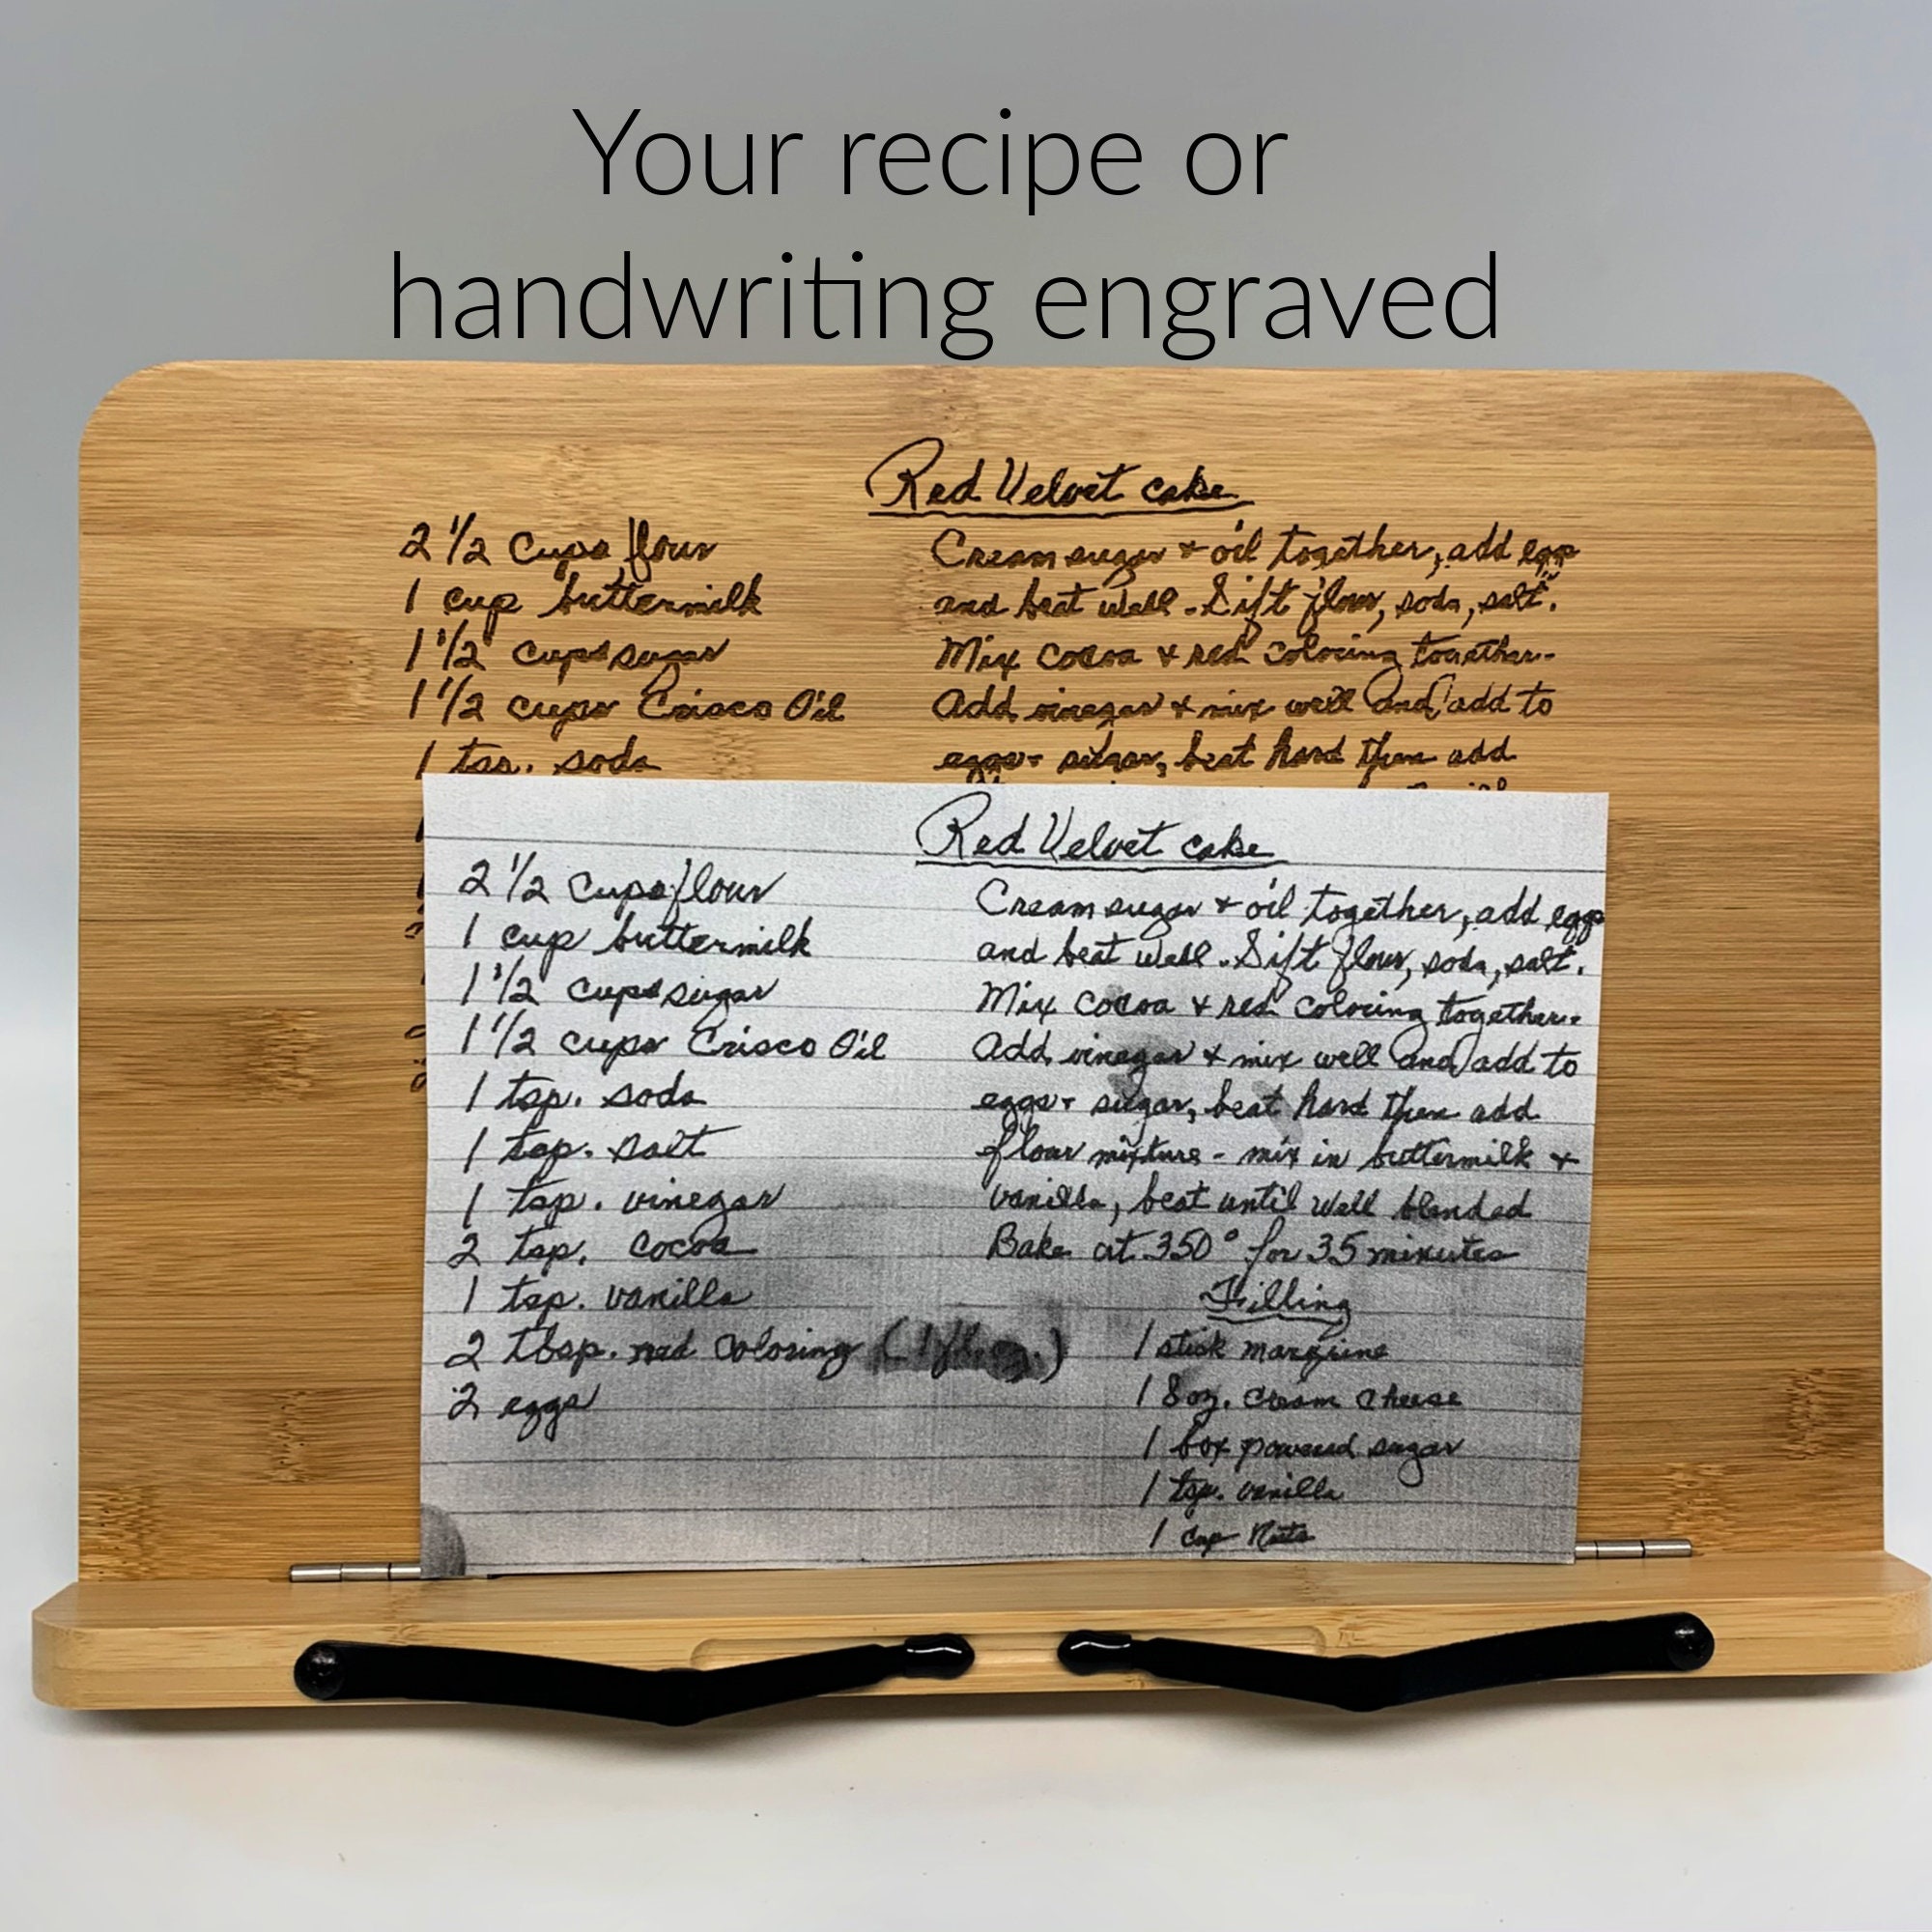 Your recipe or
handwriting engraved
Red Velvet cake
2 1/2 cups flour
1 cup buttermilk
1 1/2 cups sugar
1 1/2 cups Crisco Oil
1 tsp. soda
Cream sugar + oil together, add eggs
and beat well. Sift flour, soda, salt.
Mix cocoa + red coloring together.
Add vinegar + mix well and add to
eggs + sugar, beat hard then add
Red Velvet cake
2 1/2 cups flour
1 cup buttermilk
1 1/2 cups sugar
1 1/2 cups Crisco Oil
1 tsp. soda
1 tsp. salt
1 tsp. vinegar
2 tsp. cocoa
1 tsp. vanilla
2 tbsp. red coloring (1 fl. oz.)
2 eggs
Cream sugar + oil together, add eggs
and beat well. Sift flour, soda, salt.
Mix cocoa + red coloring together.
Add vinegar + mix well and add to
eggs + sugar, beat hard then add
flour mixture - mix in buttermilk +
vanilla, beat until well blended
Bake at 350° for 35 minutes
Filling
1 stick margrine
1 8 oz. cream cheese
1 box powered sugar
1 tsp. vanilla
1 cup Nuts